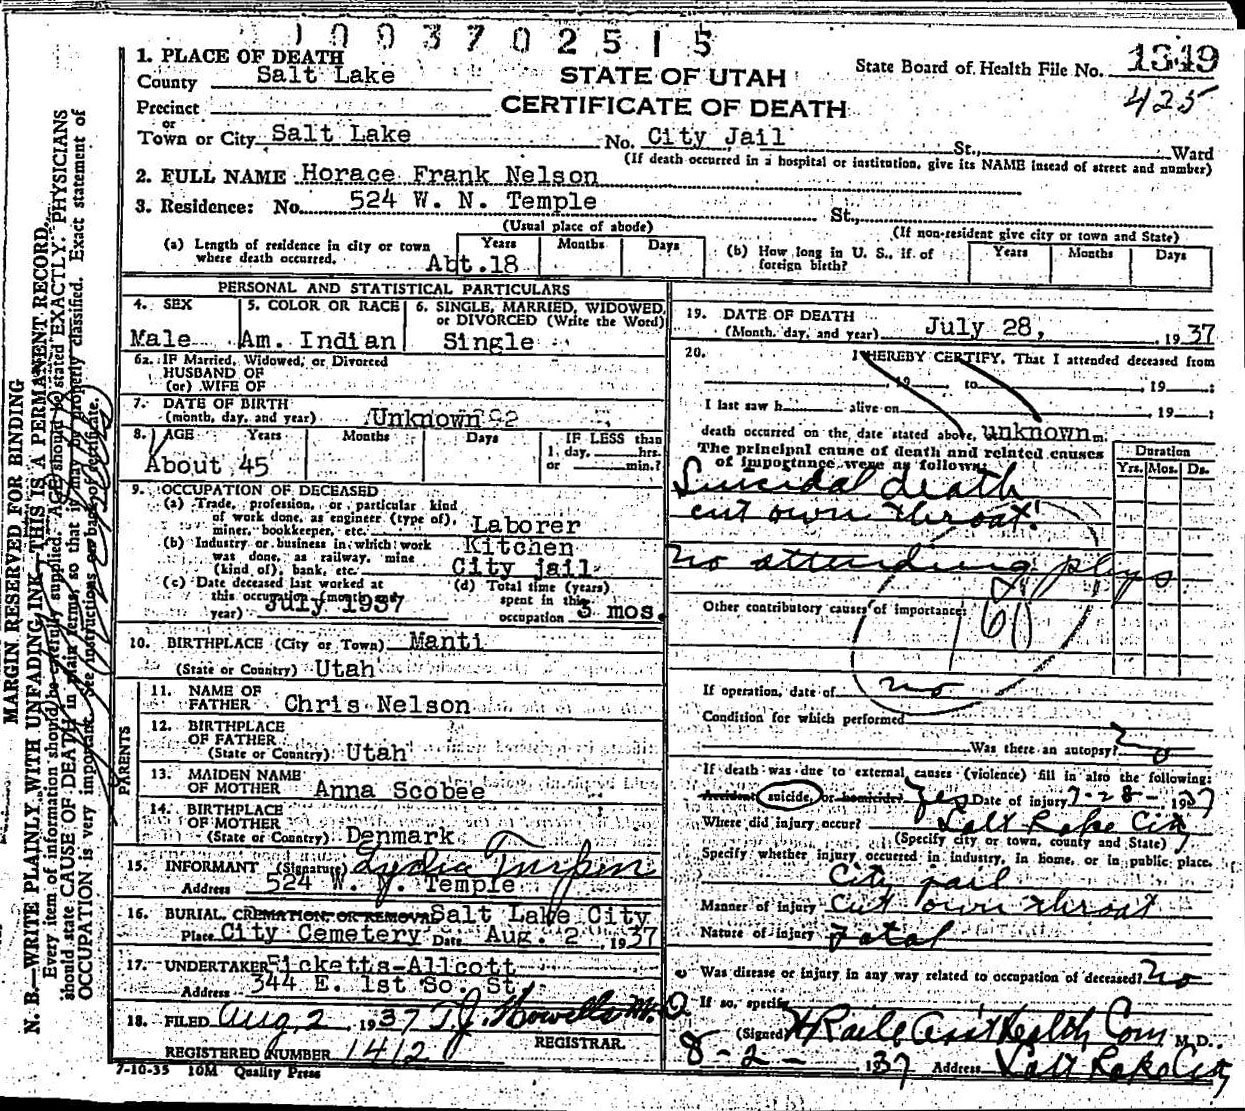 1003702515
1. PLACE OF DEATH
County Salt Lake
STATE OF UTAH
State Board of Health File No. 1349
Precinct
CERTIFICATE OF DEATH
425
or
Town or City Salt Lake No. City Jail St., Ward
(If death occurred in a hospital or institution, give its NAME instead of street and number)
2. FULL NAME Horace Frank Nelson
3. Residence: No. 524 W. N. Temple St.,
(Usual place of abode) (If non-resident give city or town and State)
(a) Length of residence in city or town where death occurred. Years Months Days
Abt. 18
(b) How long in U. S., if of foreign birth? Years Months Days
PERSONAL AND STATISTICAL PARTICULARS
4. SEX
Male
5. COLOR OR RACE
Am. Indian
6. SINGLE, MARRIED, WIDOWED, or DIVORCED (Write the Word)
Single
6a. IF Married, Widowed, or Divorced
HUSBAND OF
(or) WIFE OF
7. DATE OF BIRTH
(month, day, and year) Unknown 92
8. AGE Years Months Days IF LESS than
1 day, hrs.
or min.?
About 45
9. OCCUPATION OF DECEASED
(a) Trade, profession, or particular kind
of work done, as engineer (type of),
miner, bookkeeper, etc. Laborer
(b) Industry or business in which work
was done, as railway, mine
(kind of), bank, etc. Kitchen
City jail
(c) Date deceased last worked at
this occupation (month and
year) July 1937
(d) Total time (years)
spent in this
occupation 3 mos.
10. BIRTHPLACE (City or Town) Manti
(State or Country) Utah
PARENTS
11. NAME OF
FATHER Chris Nelson
12. BIRTHPLACE
OF FATHER
(State or Country) Utah
13. MAIDEN NAME
OF MOTHER Anna Scobee
14. BIRTHPLACE
OF MOTHER
(State or Country) Denmark
15. INFORMANT (Signature) Lydia Turpin
Address 524 W. N. Temple
16. BURIAL, CREMATION OR REMOVAL Salt Lake City
Place City Cemetery Date Aug. 2, 1937
17. UNDERTAKER Ricketts-Allcott
Address 344 E. 1st So. St.
18. FILED Aug. 2, 1937 T.J. Howells M.D
REGISTRAR.
REGISTERED NUMBER 1412
7-10-35 10M Quality Press
19. DATE OF DEATH
(Month, day, and year) July 28, 1937
20. I HEREBY CERTIFY, That I attended deceased from
, 19 to , 19 ;
I last saw h alive on , 19 ;
death occurred on the date stated above, unknown m.
The principal cause of death and related causes
of importance were as follows:
Duration
Yrs. Mos. Ds.
Suicidal death
cut own throat.
no attending phys
Other contributory causes of importance:
If operation, date of no
Condition for which performed
Was there an autopsy? no
If death was due to external causes (violence) fill in also the following:
Accident, suicide, or homicide? Yes Date of injury 7-28-1937
Where did injury occur? Salt Lake City
(Specify city or town, county and State)
Specify whether injury occurred in industry, in home, or in public place.
City jail
Manner of injury Cut own throat
Nature of injury Fatal
Was disease or injury in any way related to occupation of deceased? no
If so, specify
(Signed) Ass't Health Com M.D.
8-2-1937 Address Salt Lake City
MARGIN RESERVED FOR BINDING
N. B.—WRITE PLAINLY, WITH UNFADING INK—THIS IS A PERMANENT RECORD.
Every item of information should be carefully supplied. AGE should be stated EXACTLY. PHYSICIANS
should state CAUSE OF DEATH in plain terms, so that it may be properly classified. Exact statement of
OCCUPATION is very important. See instructions on back of certificate.